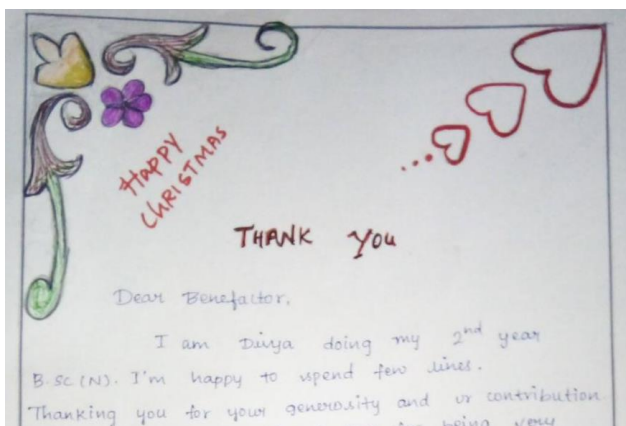 Happy
CHRISTMAS
THANK YOU
Dear Benefactor,
I am Divya doing my 2nd year
B.SC(N). I'm happy to spend few lines.
Thanking you for your generosity and ur contribution
being very